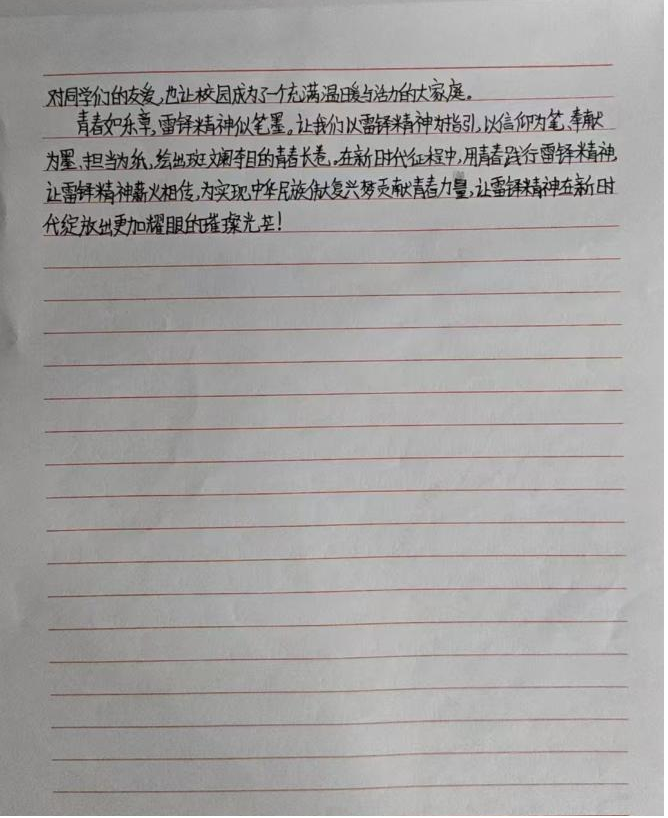 对同学们的友爱,也让校园成为了一个充满温暖与活力的大家庭。
青春如乐章,雷锋精神似笔墨。让我们以雷锋精神为指引,以信仰为笔、奉献
为墨、担当为纸,绘出斑斓夺目的青春长卷。在新时代征程中,用青春践行雷锋精神,
让雷锋精神薪火相传,为实现中华民族伟大复兴梦贡献青春力量,让雷锋精神在新时
代绽放出更加耀眼的璀璨光芒!